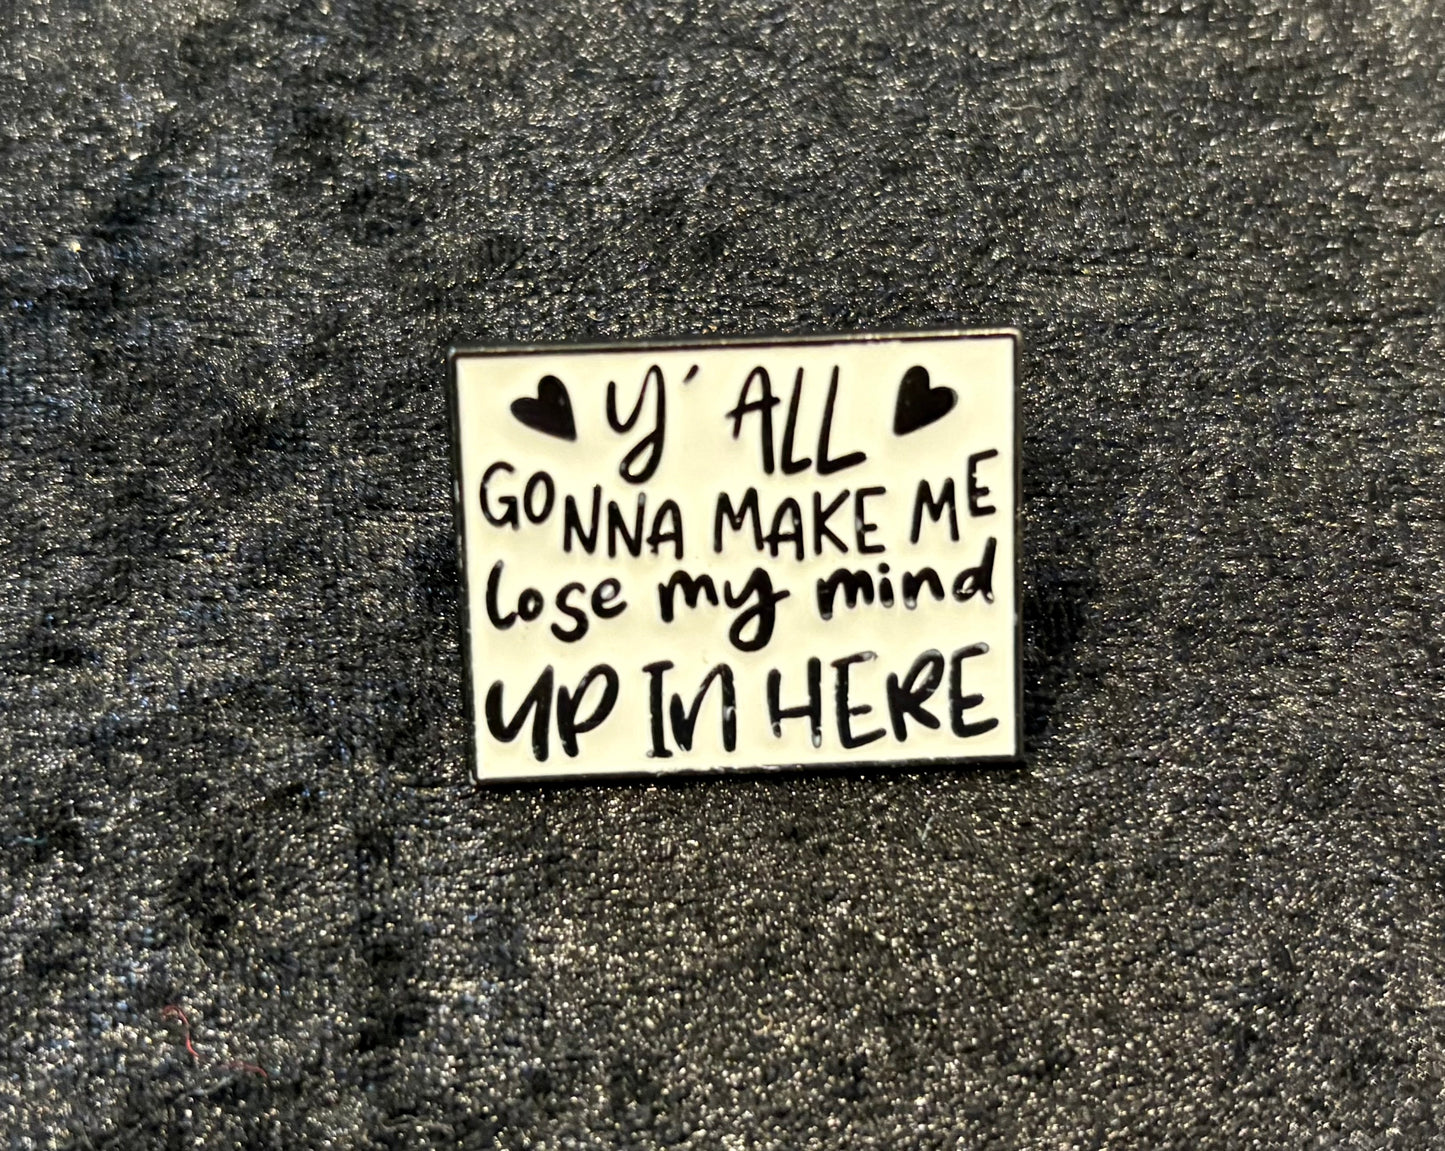 Y'ALL
GONNA MAKE ME
lose my mind
UP IN HERE